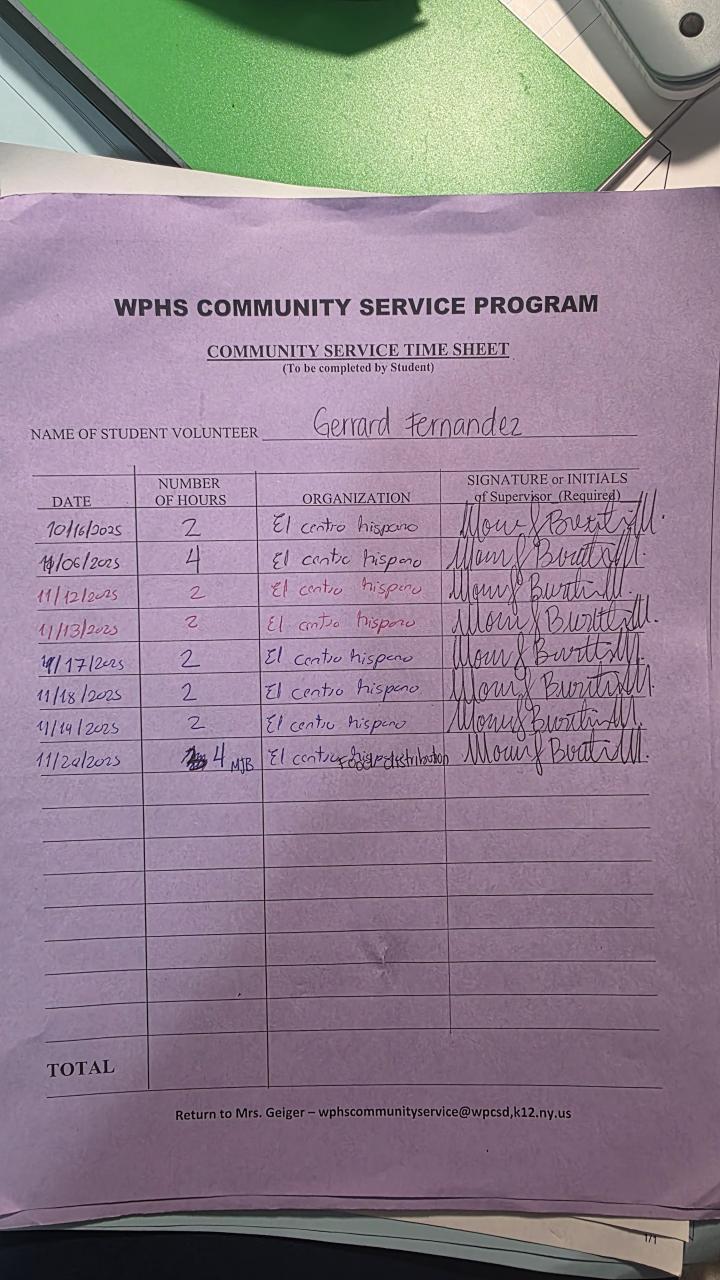 WPHS COMMUNITY SERVICE PROGRAM
COMMUNITY SERVICE TIME SHEET
(To be completed by Student)
NAME OF STUDENT VOLUNTEER Gerrard Fernandez
DATE NUMBER OF HOURS ORGANIZATION SIGNATURE or INITIALS of Supervisor (Required)
10/16/2025 2 El centro hispano
11/06/2025 4 El centro hispano
11/12/2025 2 El centro hispano
11/13/2025 2 El centro hispano
11/17/2025 2 El centro hispano
11/18/2025 2 El centro hispano
11/19/2025 2 El centro hispano
11/20/2025 4 MJB El centro hispano Food distribution
TOTAL
Return to Mrs. Geiger – wphscommunityservice@wpcsd,k12.ny.us